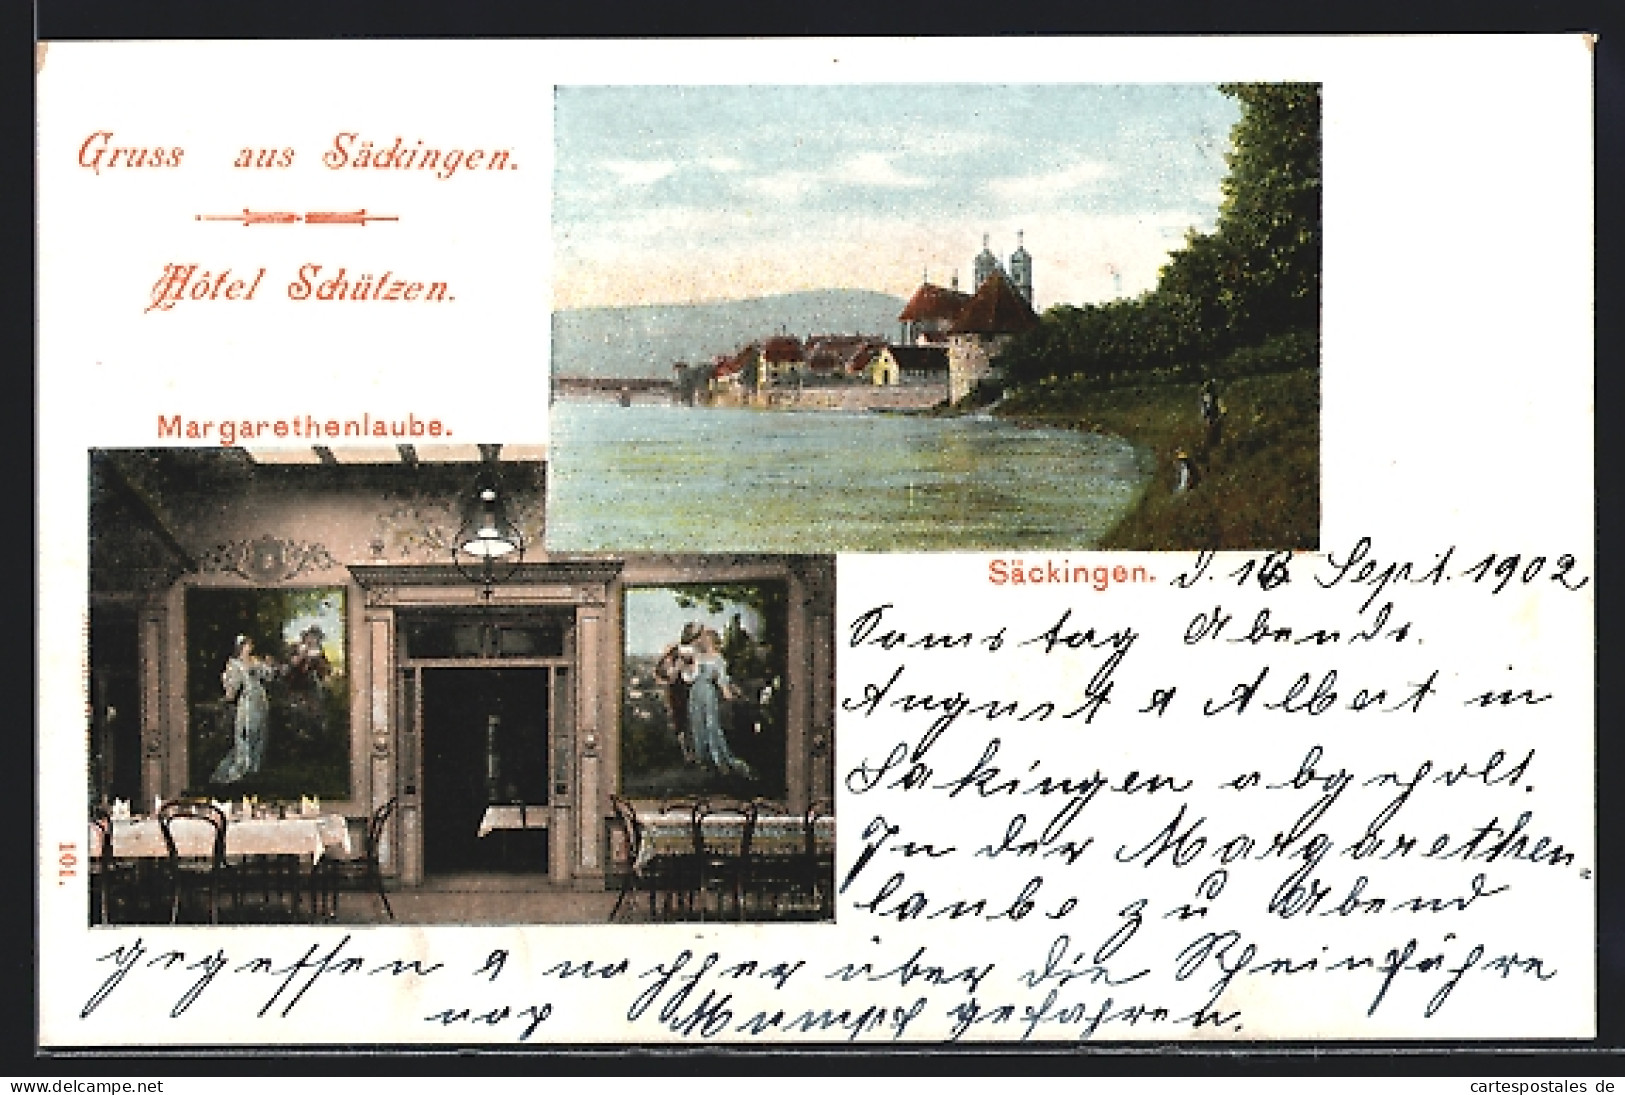 Gruss aus Säckingen.
Hôtel Schützen.
Margarethenlaube.
Säckingen. d. 16 Sept. 1902
Samstag Abends.
August & Albert in
Säkingen abgeholt.
In der Margarethen-
laube zu Abend
gegessen & nachher über die Rheinfähre
nach Mumpf gefahren.
101.
delcampe.net
cartespostales de